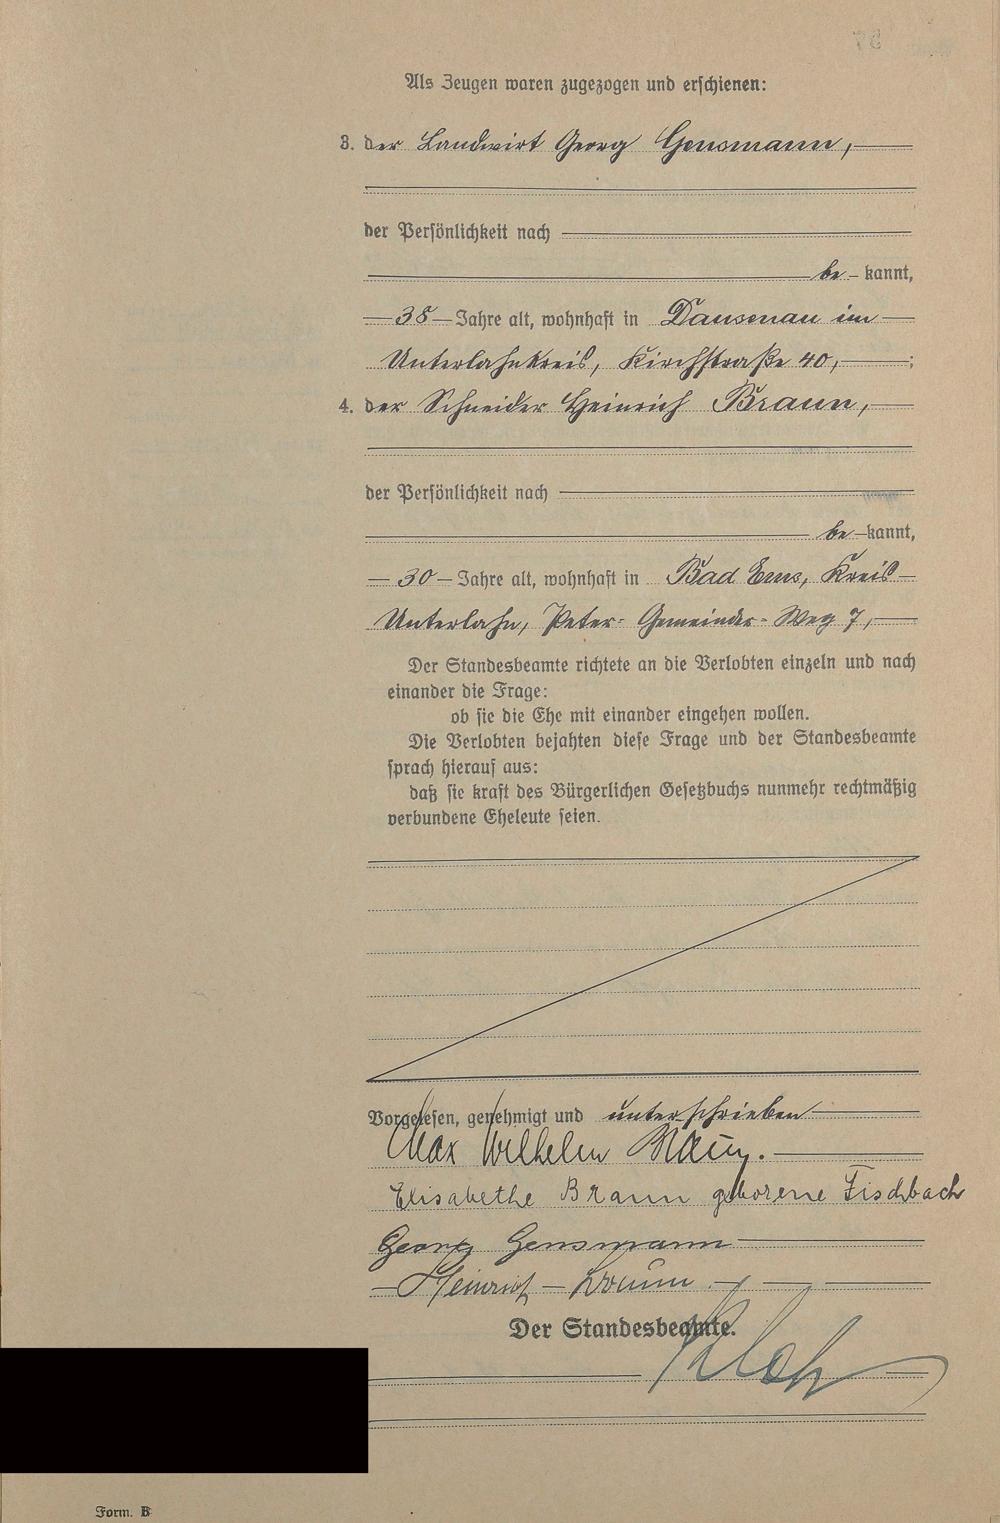 Als Zeugen waren zugezogen und erschienen:
3. der Landwirt Georg Gensmann,
der Persönlichkeit nach
be- kannt,
38 Jahre alt, wohnhaft in Dausenau im
Unterlahnkreis, Kirchstraße 40, ;
4. der Schneider Heinrich Braun,
der Persönlichkeit nach
be- kannt,
30 Jahre alt, wohnhaft in Bad Ems, Kreis
Unterlahn, Peter- Gemeinder- Weg 7,
Der Standesbeamte richtete an die Verlobten einzeln und nach
einander die Frage:
ob sie die Ehe mit einander eingehen wollen.
Die Verlobten bejahten diese Frage und der Standesbeamte
sprach hierauf aus:
daß sie kraft des Bürgerlichen Gesetzbuchs nunmehr rechtmäßig
verbundene Eheleute seien.
Vorgelesen, genehmigt und unterschrieben
Max Wilhelm Braun.
Elisabethe Braun geborene Fischbach
Georg Gensmann
Heinrich Braun
Der Standesbeamte.
Form. B